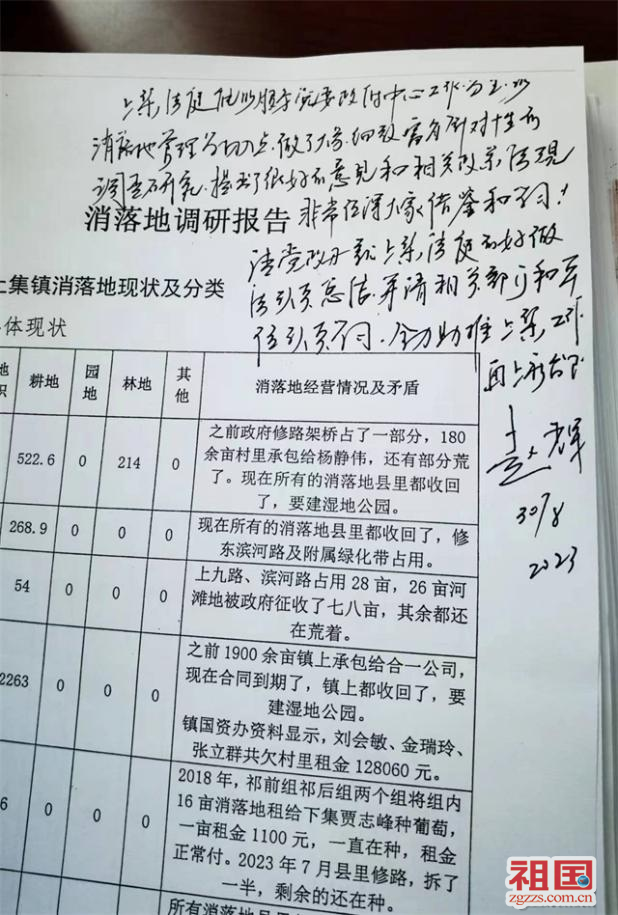 上集法庭服务党委政府中心工作为主
消落地管理为切入点,做了大量、细致、富有针对性的
调查研究,提出了很好的意见和相关政策法规
消落地调研报告 非常值得大家借鉴和
请党政办就上集法庭的好做
法认真总结,并请相关部门和单
位认真 助推上集工作
再上新台阶
赵辉
30/8
2023
上集镇消落地现状及分类
体现状
耕地 园地 林地 其他 消落地经营情况及矛盾
522.6 0 214 0
之前政府修路架桥占了一部分,180
余亩村里承包给杨静伟,还有部分荒
了。现在所有的消落地县里都收回
了,要建湿地公园。
268.9 0 0 0
现在所有的消落地县里都收回了,修
东滨河路及附属绿化带占用。
54 0 0 0
上九路、滨河路占用 28 亩,26 亩河
滩地被政府征收了七八亩,其余都还
在荒着。
2263 0 0 0
之前 1900 余亩镇上承包给合一公司,
现在合同到期了,镇上都收回了,要
建湿地公园。
镇国资办资料显示,刘会敏、金瑞玲、
张立群共欠村里租金 128060 元。
6 0 0 0
2018 年,祁前组祁后组两个组将组内
16 亩消落地租给下集贾志峰种葡萄,
一亩租金 1100 元,一直在种,租金
正常付。2023 年 7 月县里修路,拆了
一半,剩余的还在种。
所有消落地县里
祖国
zgzzs.com.cn